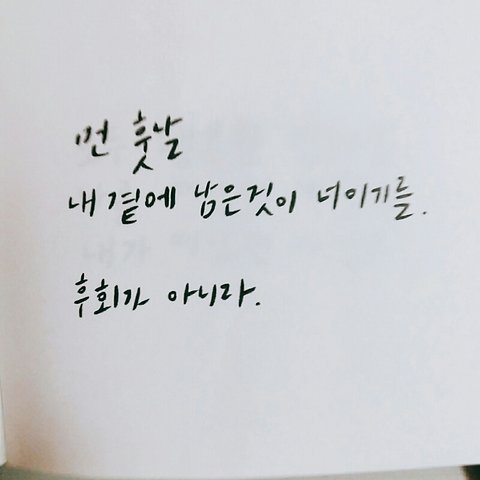 먼 훗날
내 곁에 남은것이 너이기를.
후회가 아니라.